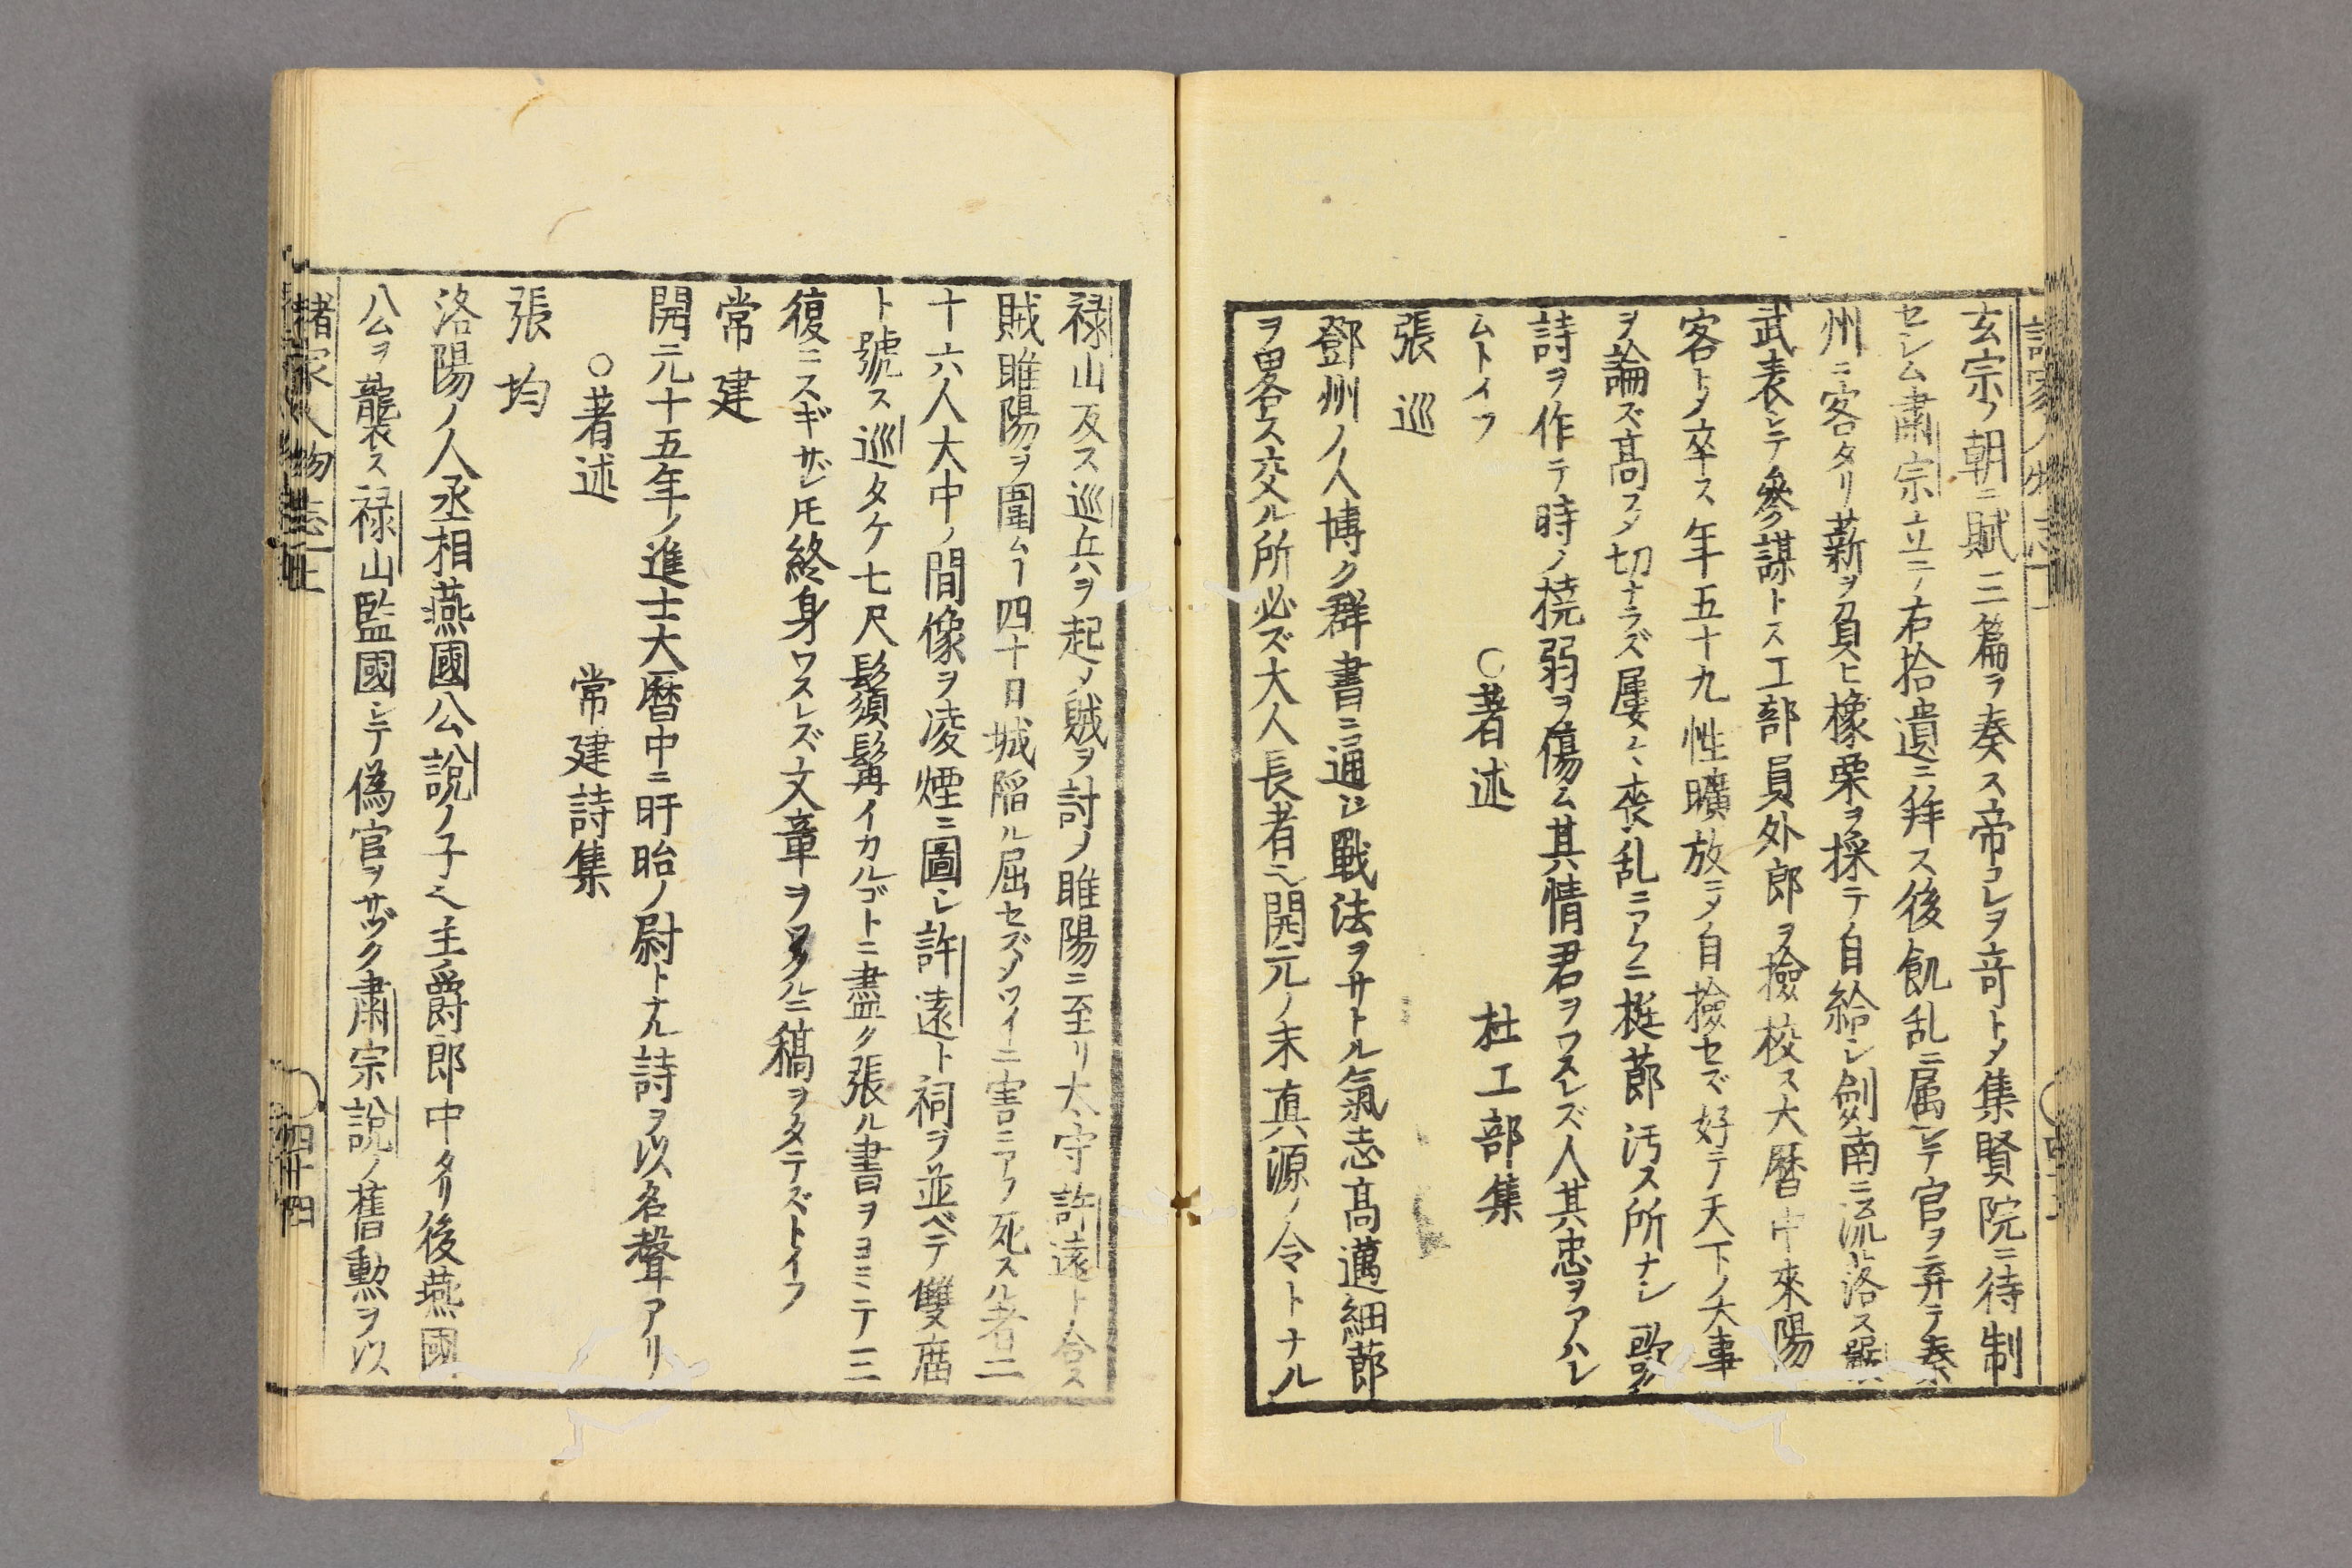 玄宗ノ朝ニ賦三篇ヲ奏ス帝コレヲ奇トメ集賢院ニ待制
セシム肅宗立ニノ右拾遺ニ拜ス後飢乱ニ属シテ官ヲ弃テ秦
州ニ客タリ薪ヲ負ヒ橡栗ヲ採テ自給シ劍南ニ流落ス嚴
武表シテ參謀トス工部員外郎ヲ撿校ス大曆中來陽
客トメ卒ス年五十九性曠放ニメ自撿セズ好テ天下ノ大事
ヲ論ズ髙フメ切ナラズ屢々喪乱ニアクニ挺莭汚ス所ナシ歌
詩ヲ作テ時ノ撓弱ヲ傷ム其情君ヲワスレズ人其忠ヲアハレ
ムトイフ
○著述 杜工部集
張巡
鄧州ノ人博ク群書ニ通ジ戰法ヲサトル氣志髙邁細莭
ヲ畧ス交ル所必ズ大人長者ニ開元ノ末真源ノ令トナル
禄山反ス巡兵ヲ起メ賊ヲ討ノ睢陽ニ至リ大守許遠ト合ス
賊睢陽ヲ圍ムヿ四十日城陥ル屈セズメツイニ害ニアフ死スル者二
十六人大中ノ間像ヲ凌煙ニ圖シ許遠ト祠ヲ並ベテ雙庿
ト號ス巡タケ七尺鬚髯イカルゴトニ盡ク張ル書ヲヨミテ三
復ニスギザレ𪜈終身ワスレズ文章ヲツクルニ稿ヲタテズトイフ
常建
開元十五年ノ進士大曆中ニ盱眙ノ尉トナル詩ヲ以名聲アリ
○著述 常建詩集
張均
洛陽ノ人丞相燕國公說ノ子ヘ主爵郎中タリ後燕國
公ヲ襲ス禄山監國シテ偽官ヲサヅク肅宗說ノ舊勲ヲ以
諸家人物志上 四十四